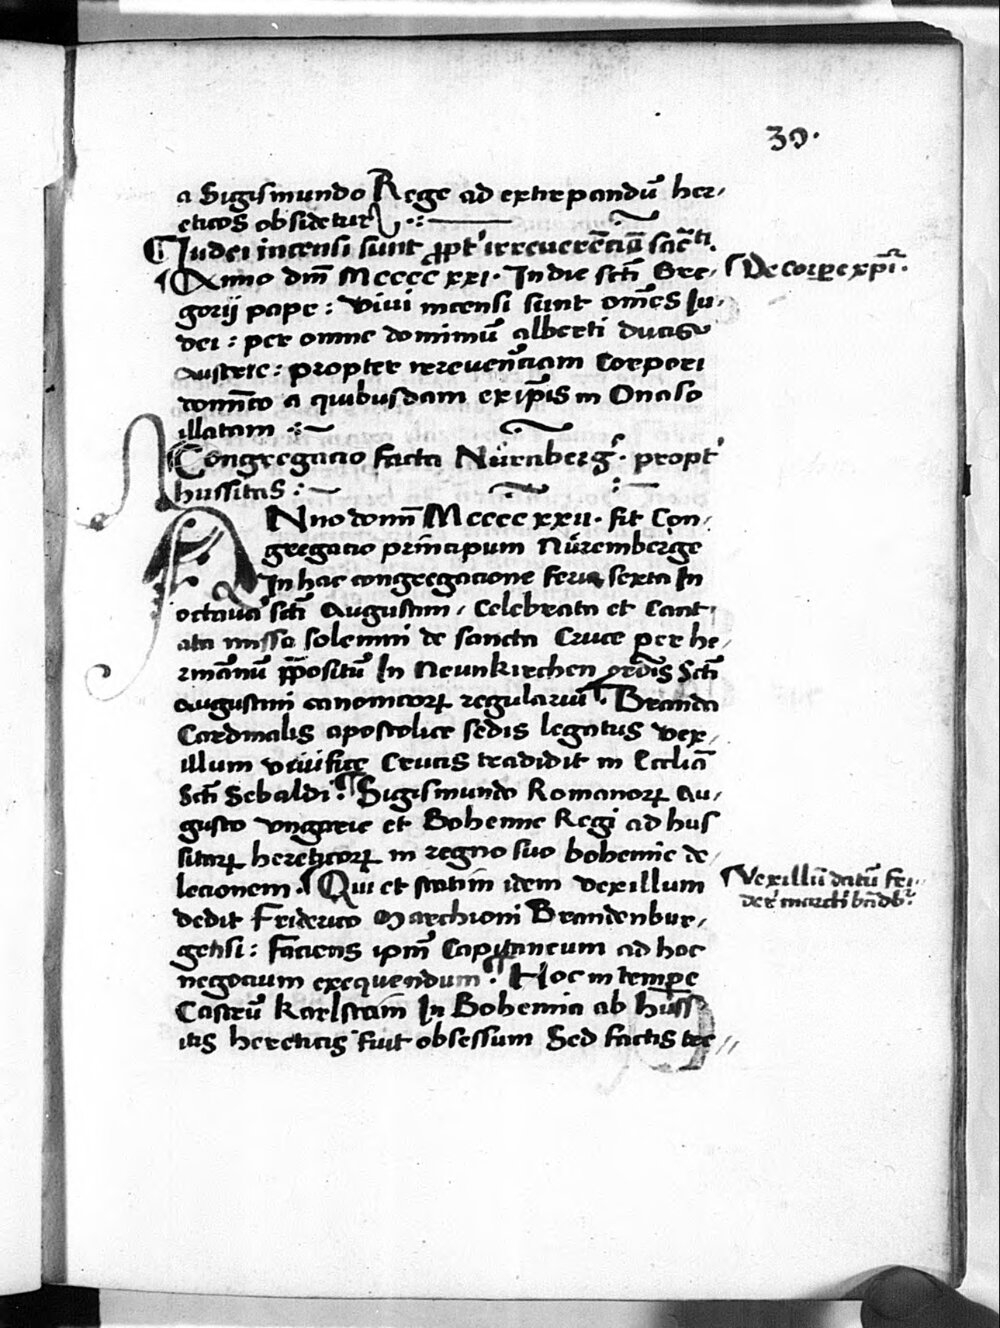 39.
a Sigismundo Rege ad extirpandū her,
eticos obsidetur
Iudei incensi sunt ꝓpt' irreuerēciā sācti
Anno dm̄ Mcccc xxi. In die scti Gre,
De corpe xpi.
gorij pape: viui incensi sunt om̄es Iu,
dei: per omne dominiū alberti ducis
austrie: propter irreuerēciam Corpori
domīco a quibusdam ex ip̄is in Onaso
illatam
Congregacio facta Nürnberg. propt'
hussitas:
ANno domi Mcccc xxii. fit Con,
gregacio principum Nüremberge
In hac congregacione feria sexta In
octauā scti Augustini, Celebrata et Cant,
ata missa solemni de sancta Cruce per he,
rmānū p̄positū In Neunkirchen ordīs Scti
Augustini canonicoꝝ regulariū Branda
Cardinalis apostolice sedis legatus vex,
illum viuifice Crucis tradidit in Eccliā
Scti Sebaldi. Sigismundo Romanoꝝ Au,
gusto vngarie et Bohemie Regi ad hus
sitaꝝ hereticoꝝ in regno suo bohemie de,
lecionem. Qui et statim idem vexillum
Vexillū datū fri,
derī marchī bādb'.
dedit Friderico Marchioni Brandenbur,
gensi: faciens ipm̄ Capitaneum ad hoc
negocium exequendum. Hoc in tempe
Castrū Karlstain In Bohemia ab huss
itis hereticis fuit obsessum Sed factis tre,,